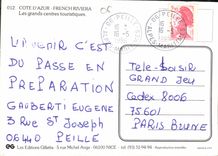 012 CÔTE D'AZUR - FRENCH RIVIERA
Les grands centres touristiques
L'AVENIR C'EST
DU PASSE EN
PREPARATION
GAUBERTI EUGENE
3 RUE ST JOSEPH
06440 PEILLE
Tele-Loisir
GRAND JEU
Cedex 8006
75601
PARIS BRUNE
Les Editions Gilletta
06100 NICE